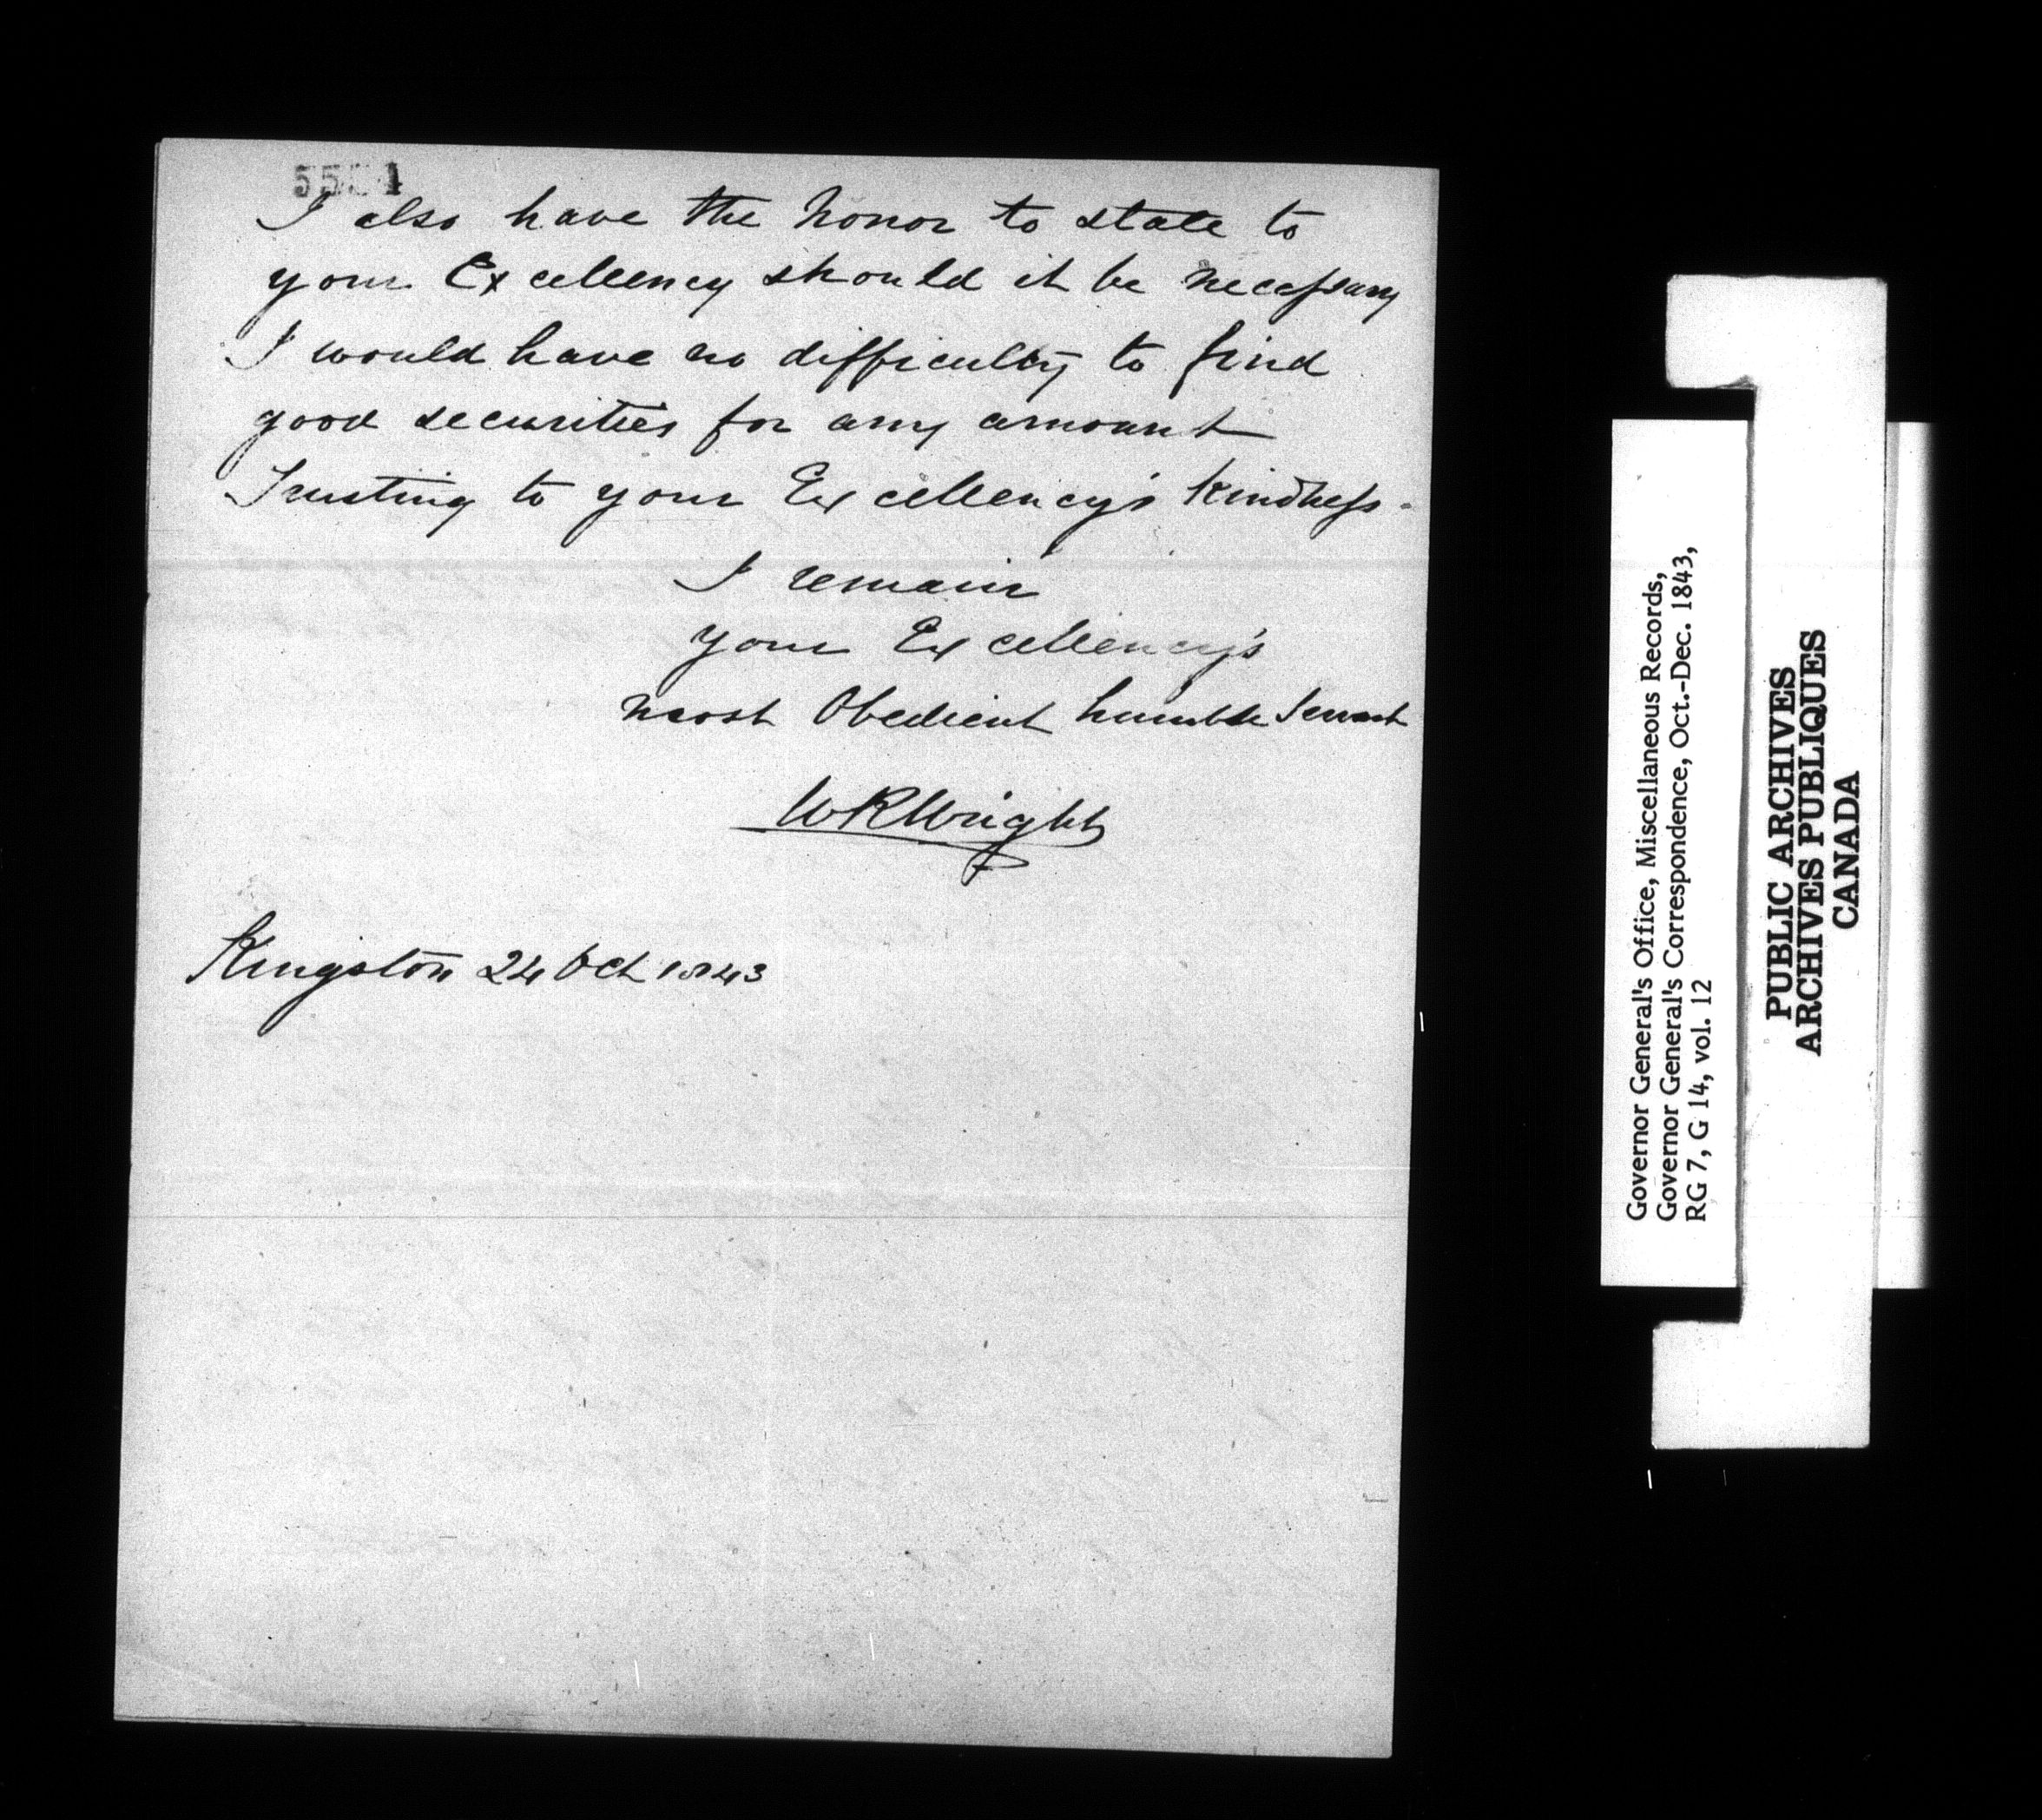 I also have the honor to state to
your Excellency should it be necessary
I would have no difficulty to find
good securities for any amount
Trusting to your Excellency's kindness.
I remain
your Excellency's
most Obedient humble Servant
WRWright
Kingston 24 Oct 1843
Governor General's Office, Miscellaneous Records,
Governor General's Correspondence, Oct.-Dec. 1843,
RG 7, G 14, vol. 12
PUBLIC ARCHIVES
ARCHIVES PUBLIQUES
CANADA